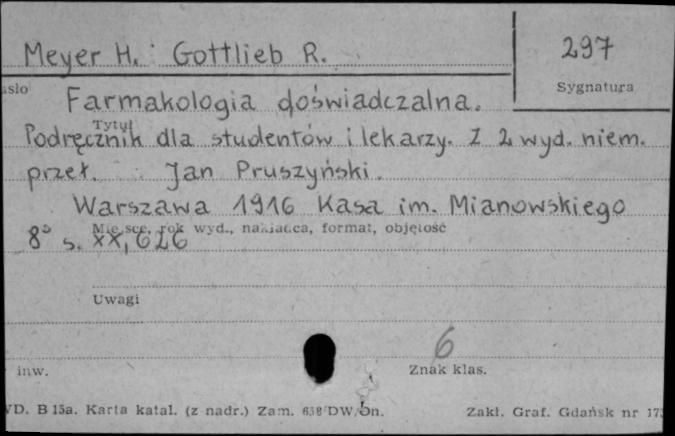 Meyer H. : Gottlieb R.
297
Sygnatura
Farmakologia doświadczalna.
Tytuł
Podręcznik dla studentów i lekarzy. Z 2 wyd. niem.
przeł. Jan Pruszyński.
Warszawa 1916 Kasa im. Mianowskiego
Miejsce, rok wyd., nakładca, format, objętość
8° s. XX, 626
Uwagi
6
inw.
Znak klas.
D. B 15a. Karta katal. (z nadr.) Zam. Zakł. Graf. Gdańsk nr